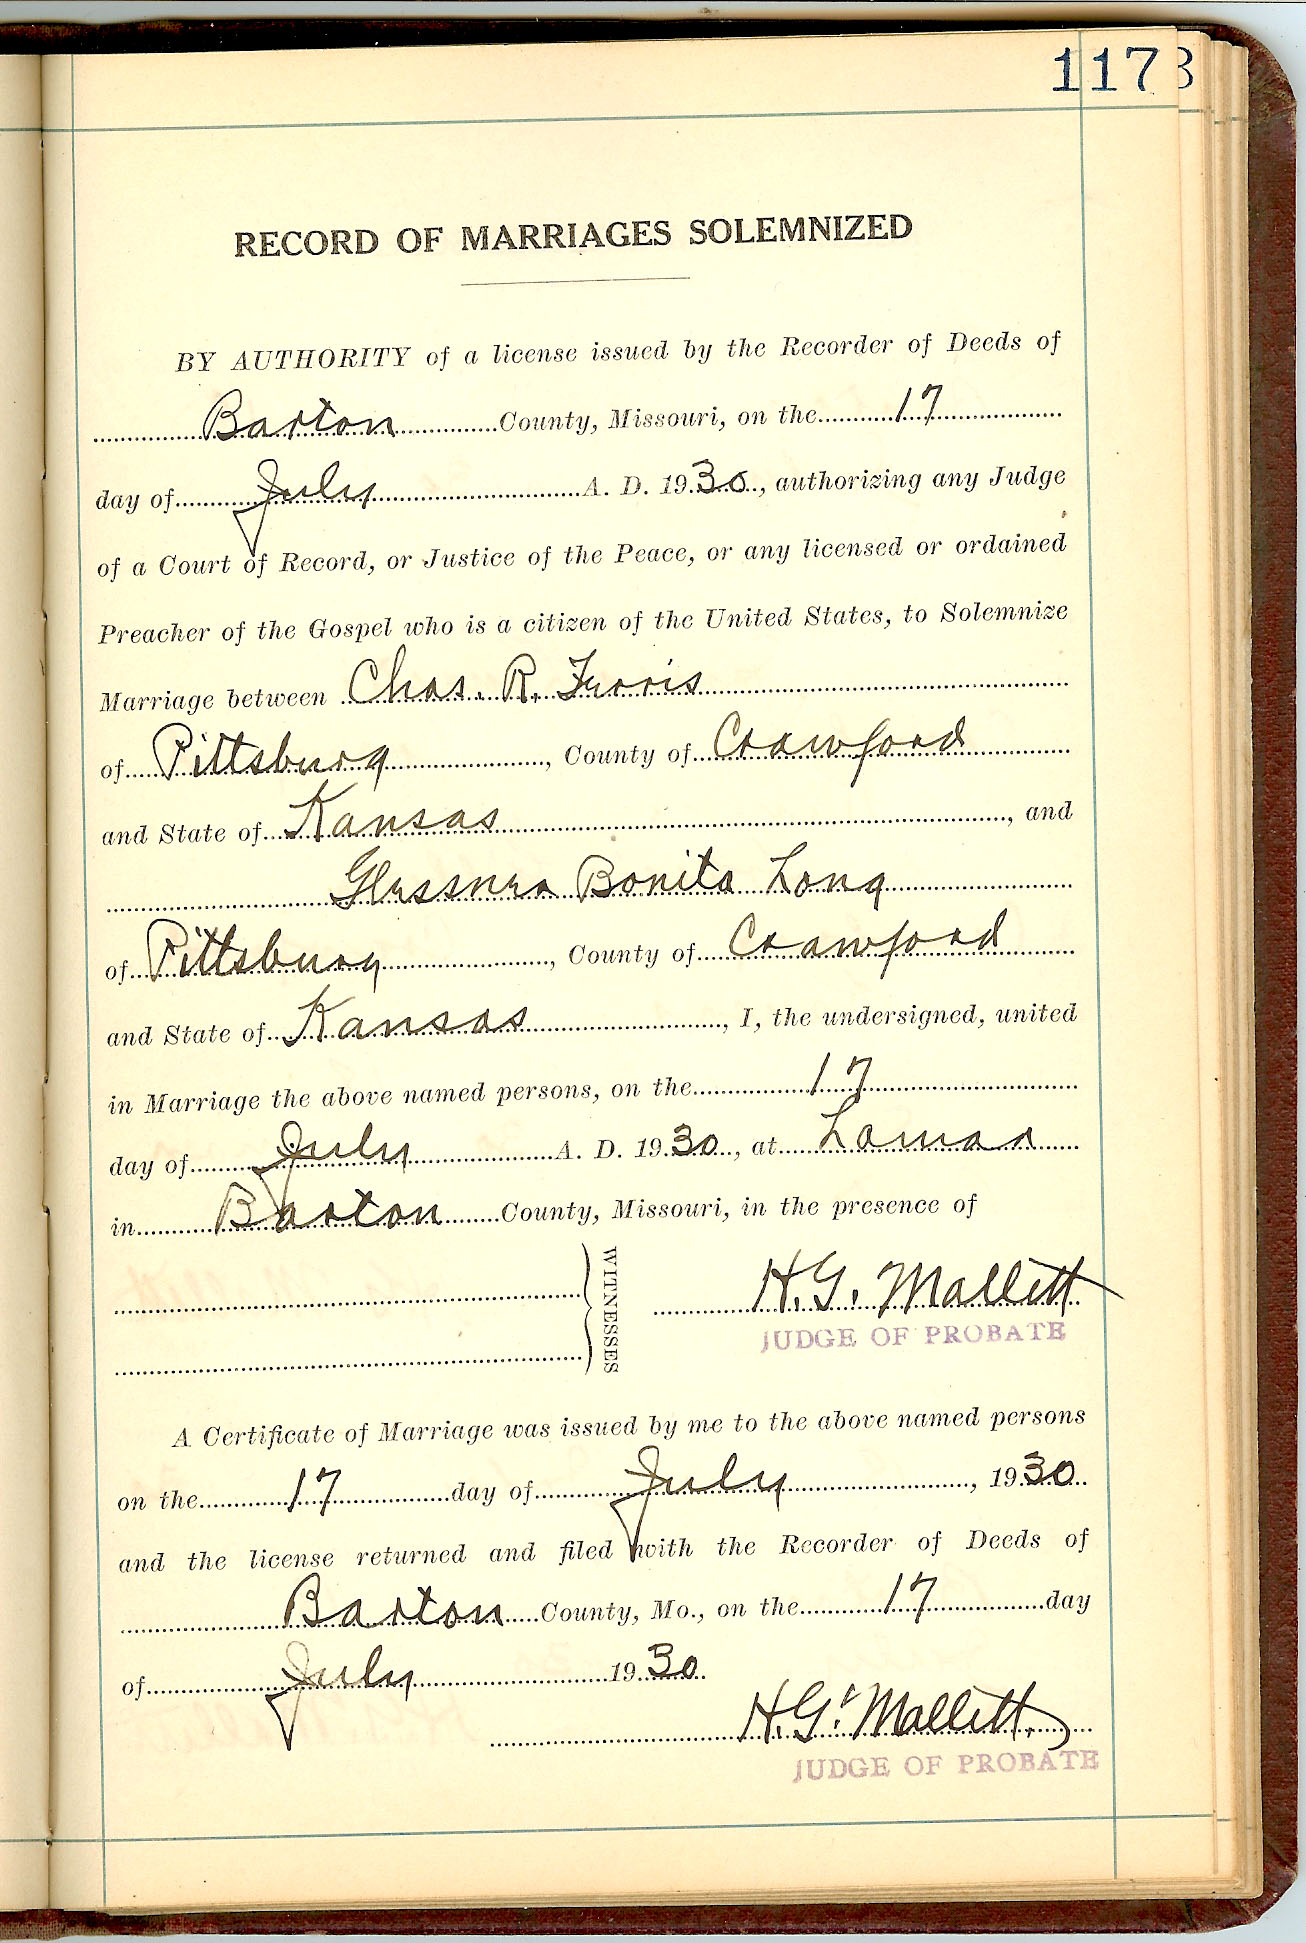 117
3
RECORD OF MARRIAGES SOLEMNIZED
BY AUTHORITY of a license issued by the Recorder of Deeds of
Barton County, Missouri, on the 17
day of July A. D. 1930, authorizing any Judge
of a Court of Record, or Justice of the Peace, or any licensed or ordained
Preacher of the Gospel who is a citizen of the United States, to Solemnize
Marriage between Chas. R. Ferris
of Pittsburg, County of Crawford
and State of Kansas, and
Glessner Bonita Long
of Pittsburg, County of Crawford
and State of Kansas, I, the undersigned, united
in Marriage the above named persons, on the 17
day of July A. D. 1930, at Lamar
in Barton County, Missouri, in the presence of
WITNESSES
H. G. Mallett
JUDGE OF PROBATE
A Certificate of Marriage was issued by me to the above named persons
on the 17 day of July, 1930
and the license returned and filed with the Recorder of Deeds of
Barton County, Mo., on the 17 day
of July 1930
H. G. Mallett
JUDGE OF PROBATE